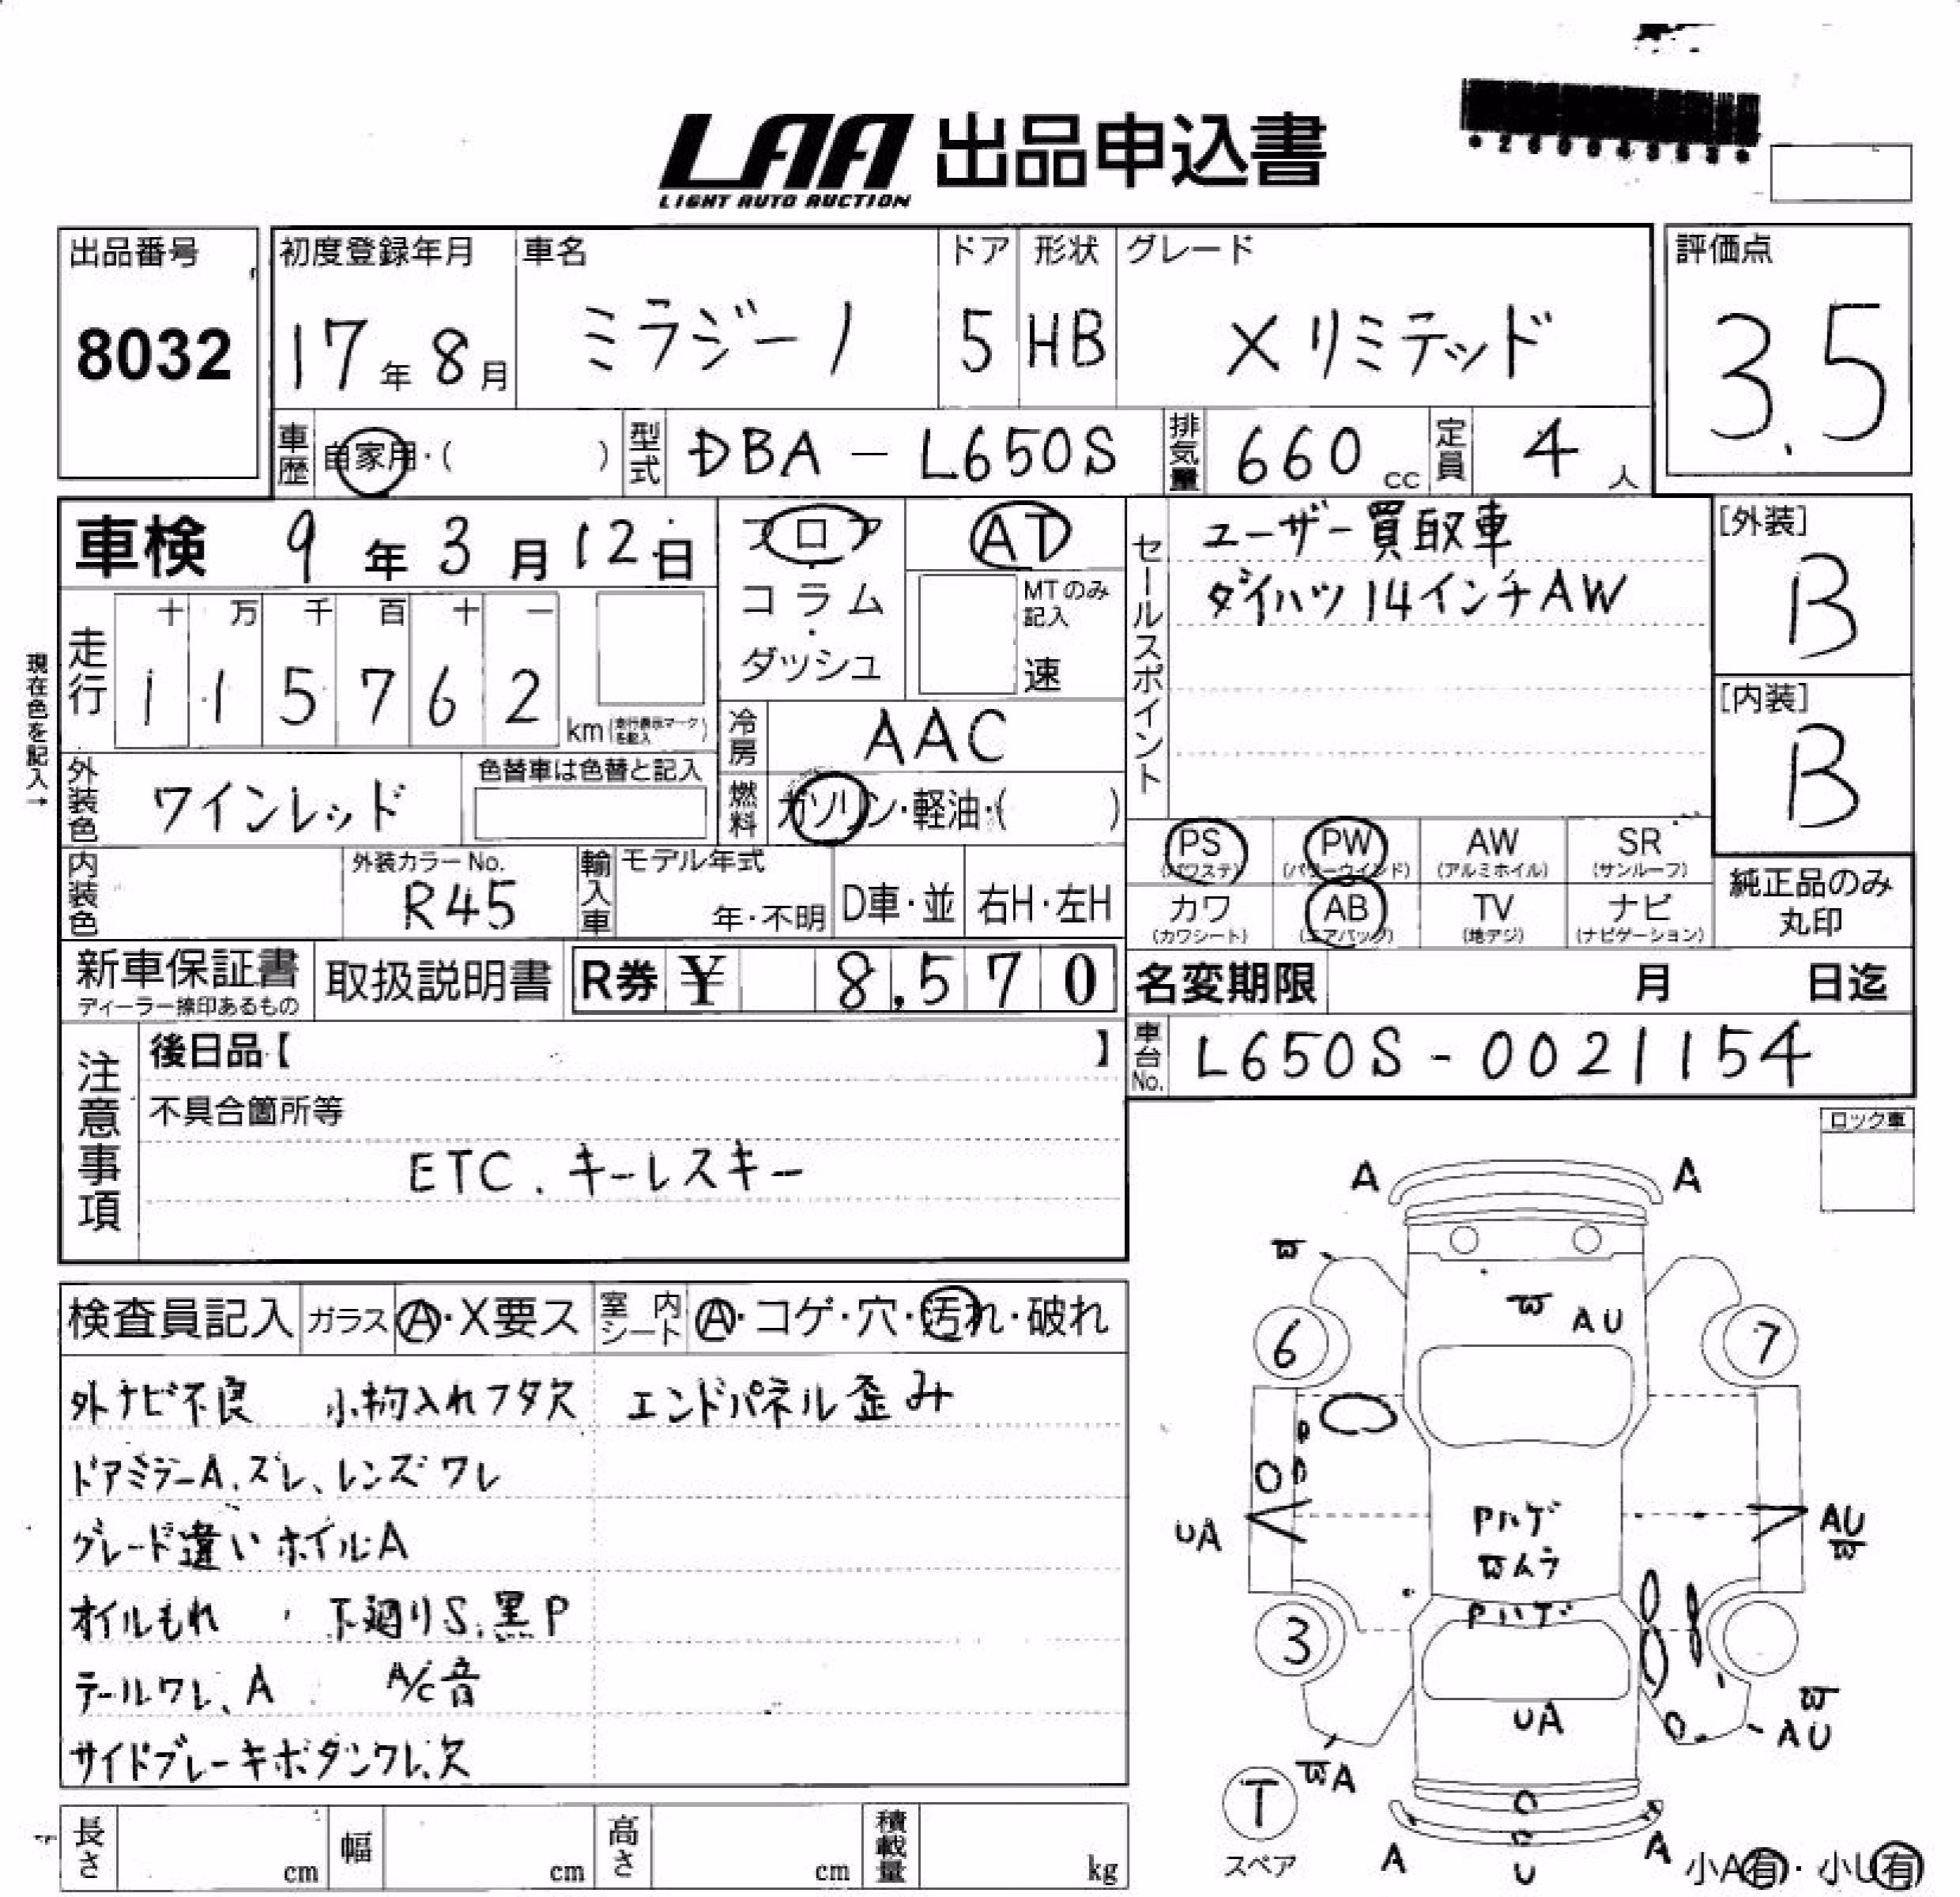 LAA 出品申込書
LIGHT AUTO AUCTION
出品番号
8032
初度登録年月 車名 ドア 形状 グレード
17年 8月 ミラジーノ 5 HB Xリミテッド
評価点
3.5
車歴 自家用・( ) 型式 DBA-L650S 排気量 660cc 定員 4人
車検 9年3月12日
フロア・コラム・ダッシュ
AT
MTのみ記入
速
セールスポイント
ユーザー買取車
ダイハツ14インチAW
[外装]
B
[内装]
B
現在色を記入→
走行 十 万 千 百 十 一
1 1 5 7 6 2 km(走行表示マークを記入)
冷房 AAC
外装色 ワインレッド 色替車は色替と記入
燃料 ガソリン・軽油・( )
内装色 外装カラーNo. R45 輸入車 モデル年式 年・不明 D車・並 右H・左H
PS (パワステ) PW (パワーウインド) AW (アルミホイル) SR (サンルーフ)
カワ (カワシート) AB (エアバッグ) TV (地デジ) ナビ (ナビゲーション)
純正品のみ
丸印
新車保証書 取扱説明書 R券 ¥ 8,570
ディーラー捺印あるもの
名変期限 月 日迄
車台No. L650S-0021154
注意事項
後日品【 】
不具合箇所等
ETC. キーレスキー
ロック車
検査員記入 ガラス A・X要ス 室内シート A・コゲ・穴・汚れ・破れ
外ナビ不良 小物入れフタ欠 エンドパネル歪み
ドアミラーA.ズレ、レンズワレ
グレード違いホイルA
オイルもれ 下廻りS.黒P
テールワレ、A A/C音
サイドブレーキボタンワレ、欠
長さ cm 幅 cm 高さ cm 積載量 kg
A A
W
W AU
6 7
UA
Pハゲ
Wムラ
AU
W
Pハゲ
3
UA
W
AU
WA
T
スペア
A U A
小A有・小U有